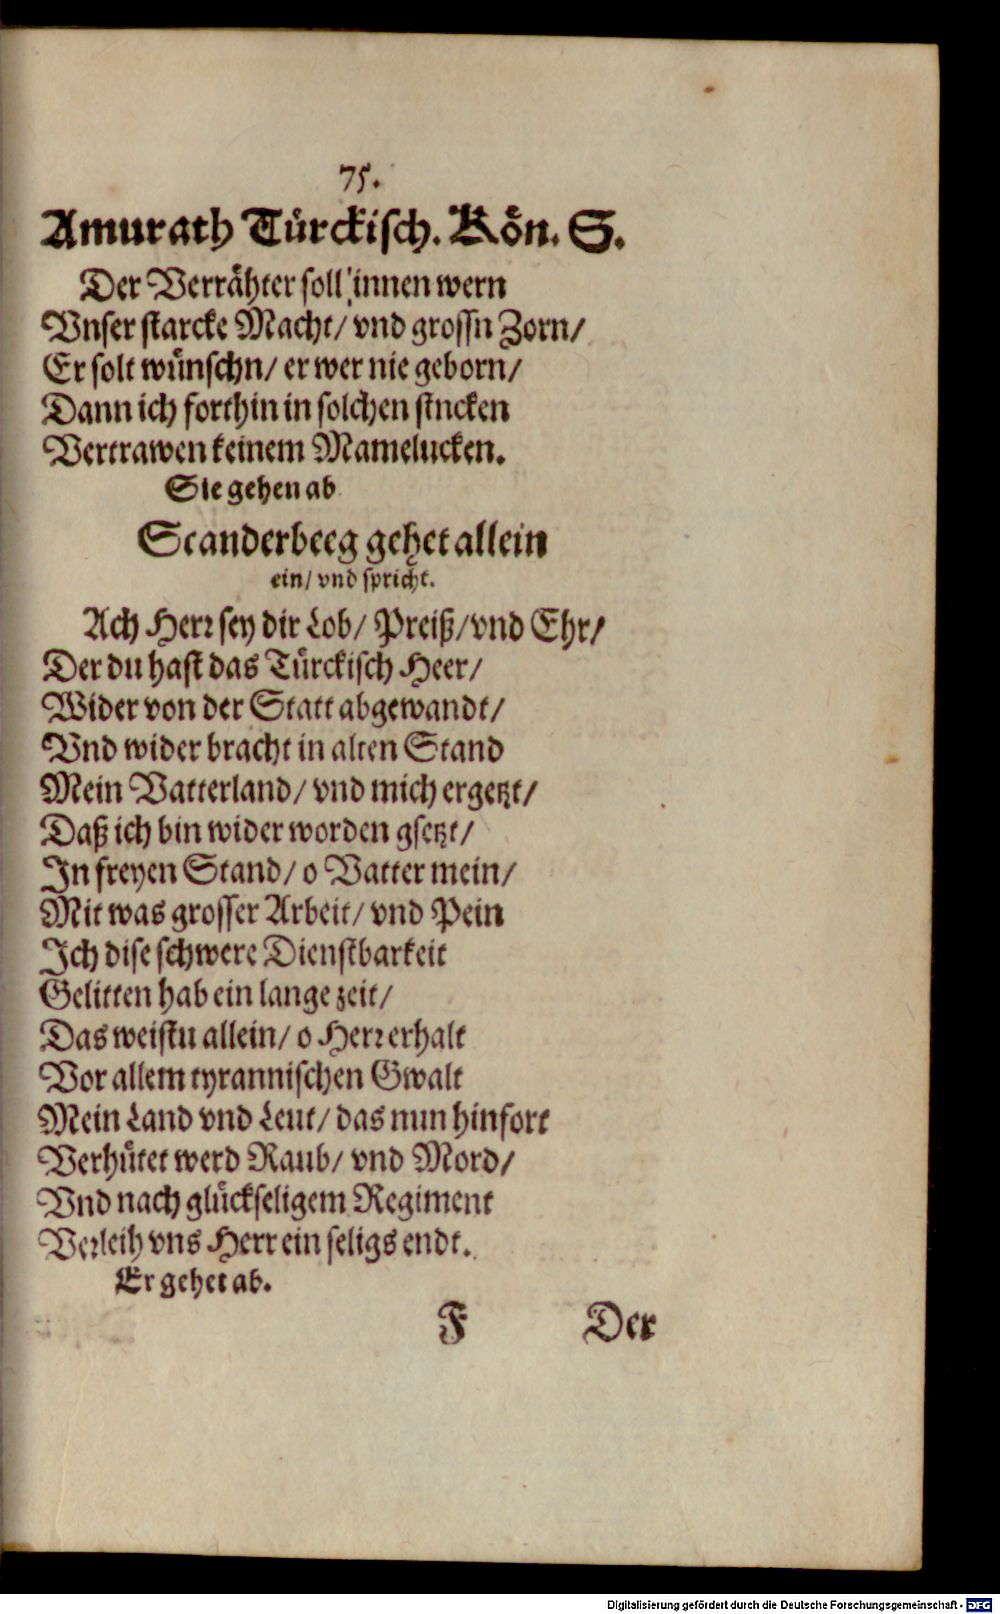 75.
Amurath Türckisch. Kön. S.
Der Verrähter soll innen wern
Vnser starcke Macht/ vnd grossn Zorn/
Er solt wünschn/ er wer nie geborn/
Dann ich forthin in solchen stncken
Vertrawen keinem Mamelucken.
Sie gehen ab
Scanderbeeg gehet allein
ein/ vnd spricht.
Ach Herr sey dir Lob/ Preiß/ vnd Ehr/
Der du hast das Türckisch Heer/
Wider von der Statt abgewandt/
Vnd wider bracht in alten Stand
Mein Vatterland/ vnd mich ergetzt/
Daß ich bin wider worden gsetzt/
In freyen Stand/ o Vatter mein/
Mit was grosser Arbeit/ vnd Pein
Ich dise schwere Dienstbarkeit
Gelitten hab ein lange zeit/
Das weistu allein/ o Herr erhalt
Vor allem tyrannischen Gwalt
Mein Land vnd Leut/ das nun hinfort
Verhütet werd Raub/ vnd Mord/
Vnd nach glückseligem Regiment
Verleih vns Herr ein seligs endt.
Er gehet ab.
F Der
Digitalisierung gefördert durch die Deutsche Forschungsgemeinschaft - DFG